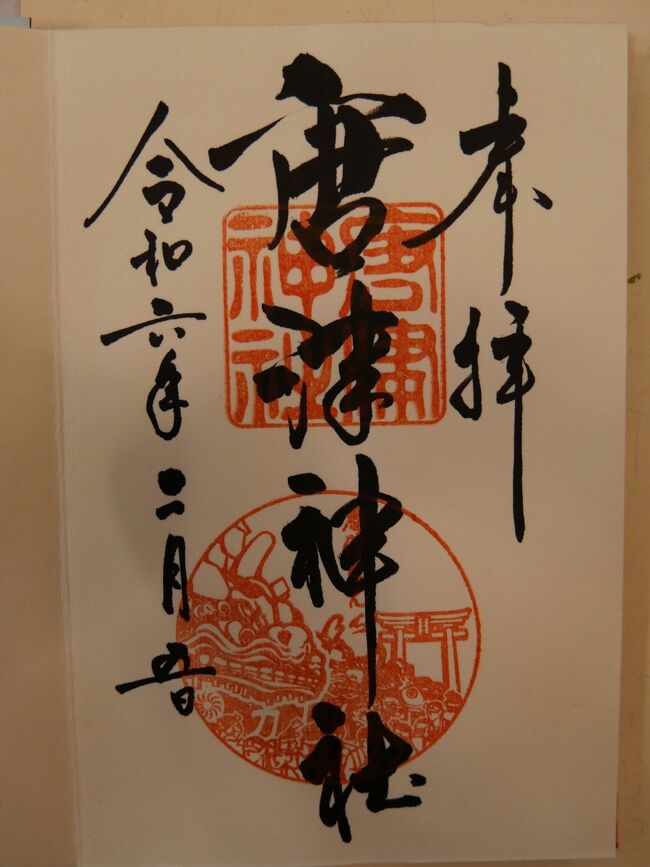 奉拝
唐津神社
唐津神社
令和六年二月五日